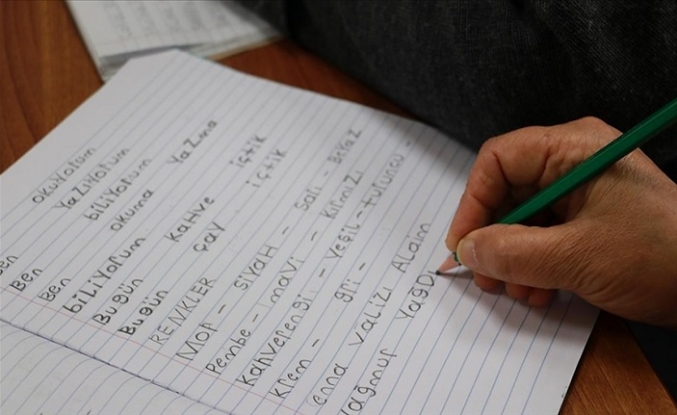 Ben okuYorum
Ben YaZıYorum
Ben biliYorum
biliYorum okuma YaZma
Bugün Kahve içtik
Bugün çay içtik
RENKLER
Mor - SiYaH - Sarı - BeYaZ
Pembe - mavi - KırmıZı
Kahverengi - Yeşil - turuncu -
Krem - gri -
valiZi
Yağmur YağDı